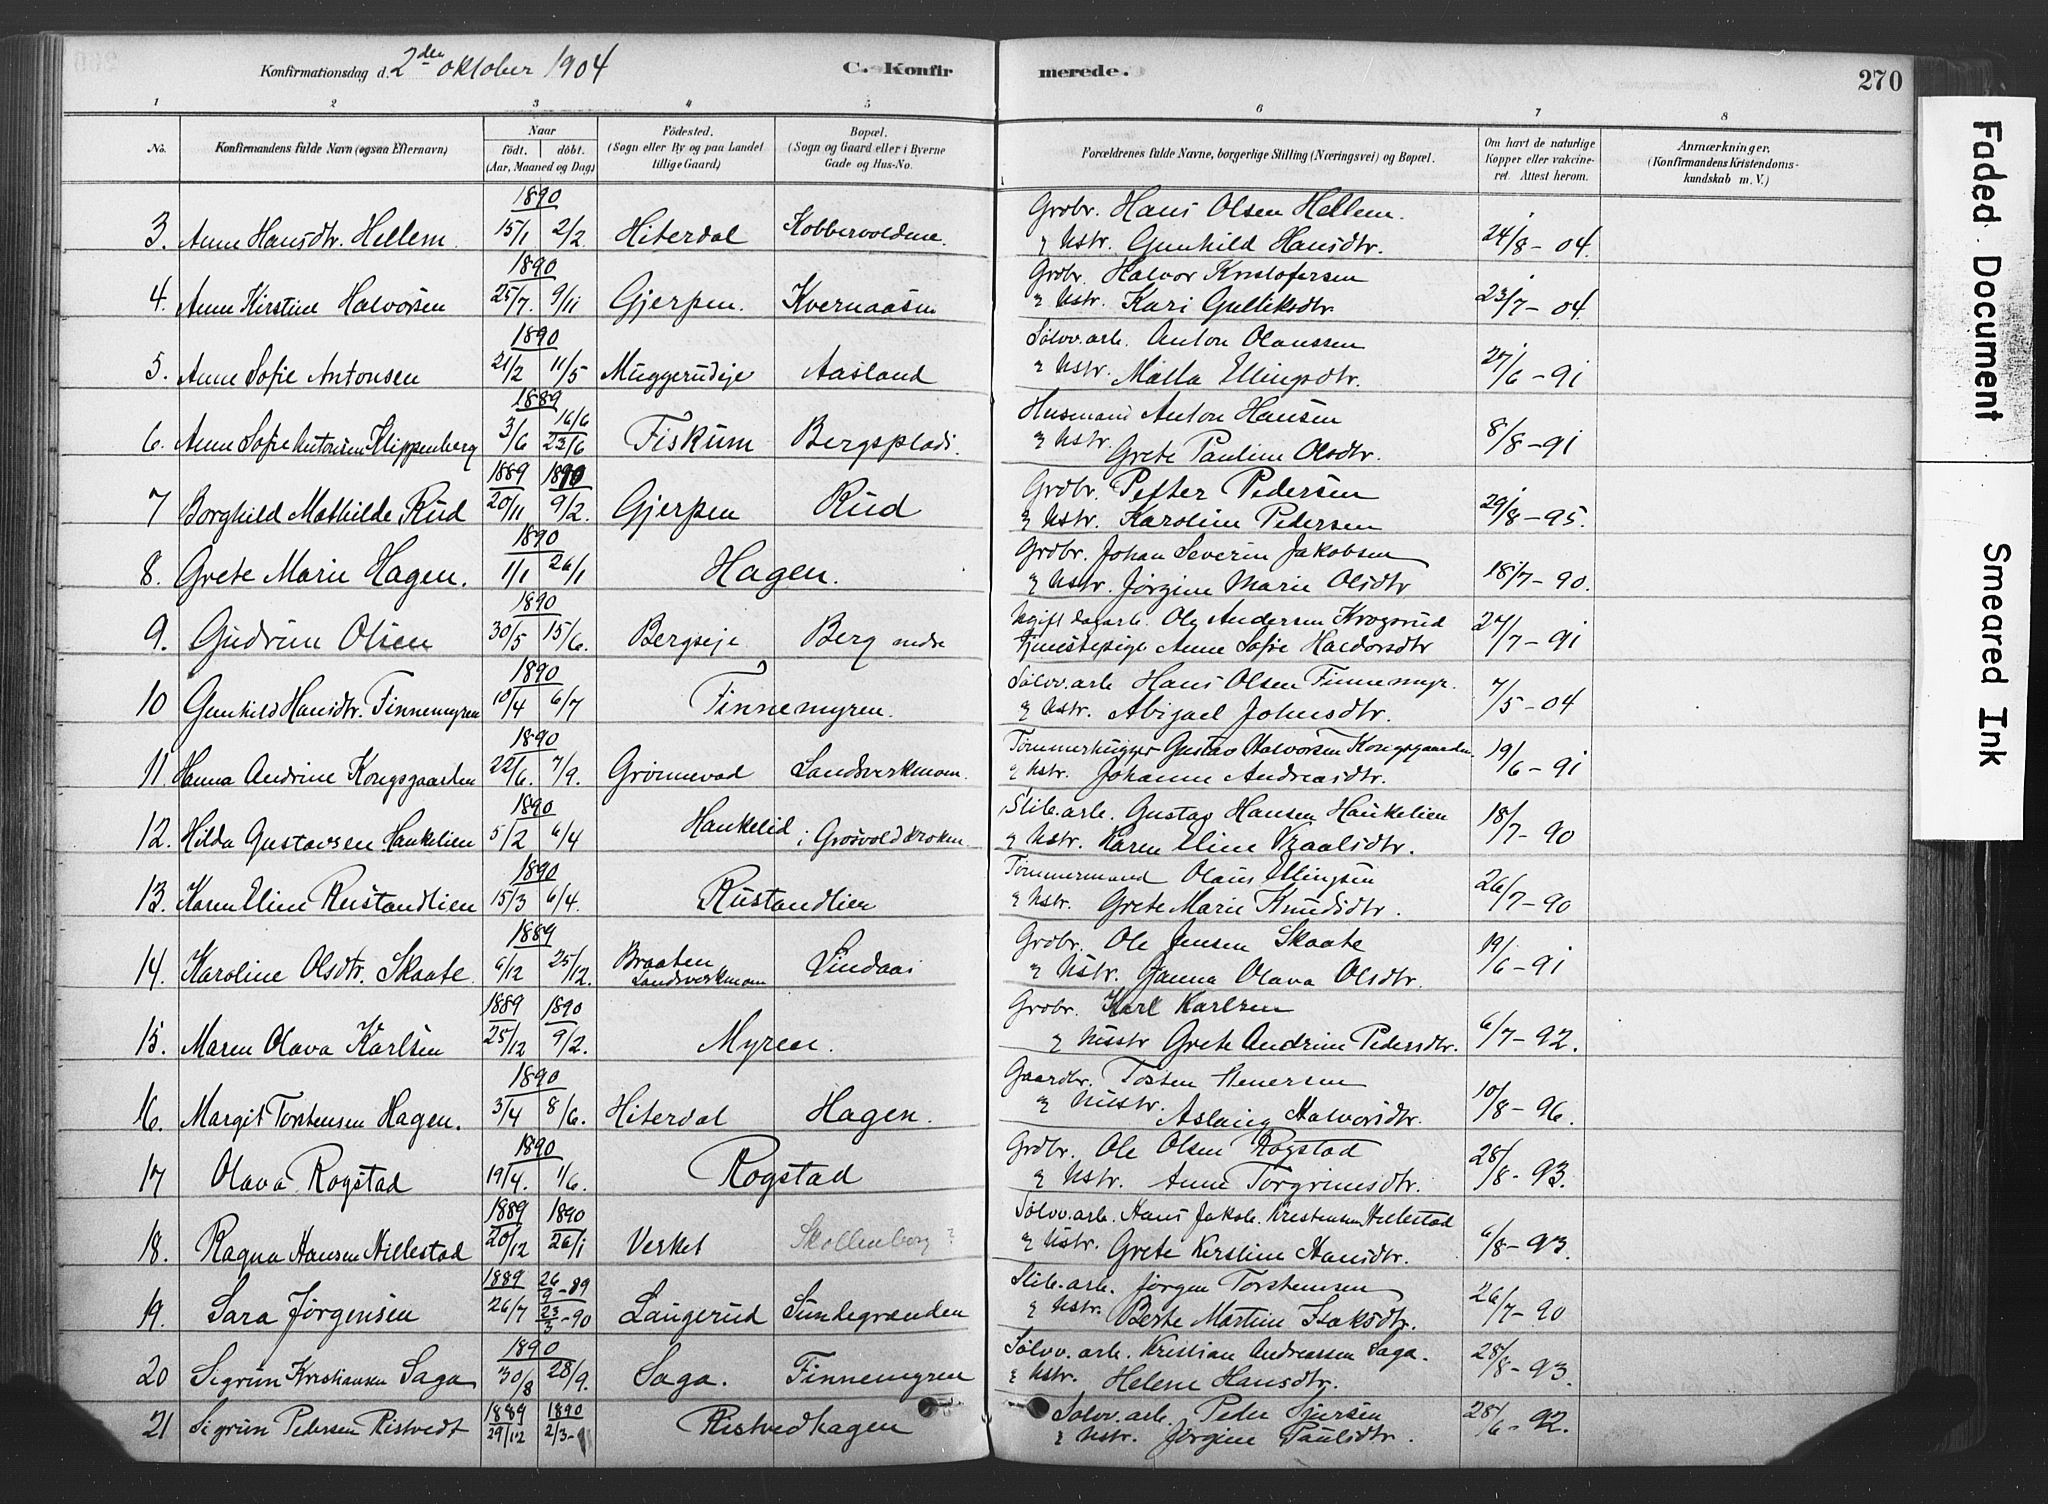 Konfirmationsdag d. 2den oktober 1904
C. Konfirmerede.
270
1 2 3 4 5 6 7 8
No. Konfirmandens fulde Navn (ogsaa Efternavn) Naar født. døbt. (Aar, Maaned og Dag) Fødested. (Sogn eller By og paa Landet tillige Gaard) Bopæl. (Sogn og Gaard eller i Byerne Gade og Hus-No. Forældrenes fulde Navne, borgerlige Stilling (Næringsvei) og Bopæl. Om havt de naturlige Kopper eller vakcineret. Attest herom. Anmærkninger. (Konfirmandens Kristendomskundskab m. V.)
3. Anne Hansdtr. Hellem 1890 15/1 2/2 Hiterdal Kobbervoldene Grdbr. Hans Olsen Hellem. & Hstr. Gunhild Hansdtr. 24/8-04.
4. Anne Kirstine Halvorsen 1890 25/7. 9/11 Gjerpen. Kvernaasen Grdbr. Halvor Kristofersen & Hstr. Kari Gulliksdtr. 23/7-04.
5. Anne Sofie Antonsen 1890 21/2 11/5 Muggerudeje Aasland Sølvv.arb. Anton Olaussen & Hstr. Malla Ellingsdtr. 27/6-91
6. Anne Sofie Antonsen Klippenberg 1889 3/6 16/6 23/6 Fiskum Bergsplads. Husmand Anton Hansen & Hstr. Grete Pauline Olsdtr. 8/8-91
7 Borghild Mathilde Rud 1889 20/11 1890 9/2. Gjerpen Rud Grdbr. Petter Pedersen & Hstr. Karoline Pedersen 29/8-95.
8. Grete Marie Hagen. 1890 1/1 26/1 Hagen. Grdbr. Johan Severin Jakobsen & Hstr. Jørgine Marie Olsdtr 18/7-90.
9. Gudrun Olsen 1890 30/5 15/6. Bergseje Berg nedre Ugift dagarb. Ole Andersen Krogsrud Tjenestepige Anne Sofie Haldorsdtr 27/7-91
10 Gunhild Hansdtr. Finnemyren 1890 10/4 6/7 Finnemyren. Sølvv.arb Hans Olsen Finnemyr. & Hstr. Abigael Johnsdtr. 7/5-04
11. Hanna Andrine Kongsgaarden 1890 22/6. 7/9. Grønnevad Landverkmoen. Tømmerhugger Gustav Halvorsen Kongsgaarden & Hstr. Johanne Andreasdtr. 19/6-91
12. Hilda Gustavsen Haukelien 1890 5/2 6/4 Haukelid i Grosvoldkroken Slib.arb. Gustav Hansen Haukelien & Hstr. Karen Eline Vraalsdtr. 18/7-90
13. Karen Eline Rustandlien 1890 15/3 6/4. Rustandlien Tømmermand Olaus Ellingsen & Hstr. Grete Marie Knudsdtr. 26/7-90
14. Karoline Olsdtr. Skaate. 1889 6/12 25/12. Braaten Landsverkmoen Lindaas Grdbr. Ole Jensen Skaate & Hstr. Janna Olava Olsdtr. 19/6-91
15. Maren Olava Karlsen 1889 25/12 1890 9/2. Myren. Grdbr. Karl Karlsen & Hustr Grete Andrine Pedersdtr. 6/7-92.
16. Margit Torstensen Hagen. 1890 3/4 8/6. Hiterdal Hagen. Gaardbr. Tosten Stenersen & Hustr. Aslaug Halvorsdtr. 10/8-96.
17 Olava Rogstad 1890 19/4. 1/6. Rogstad Grdbr. Ole Olsen Rogstad & Hstr. Anne Torgrimsdtr. 28/8-93.
18. Ragna Hansen Hillestad 1889 20/12 1890 26/1 Verket Skollenborg? Sølvv.arb. Hans Jakob Kristensen Hillestad & Hstr. Grete Kirstine Hansdtr. 6/8-93.
19. Sara Jørgensen 1889 26/7 26/9-89 23/3-90 Laugerud Sundegrænden Slib.arb. Jørgen Torstensen & Hstr. Berte Martine Isaksdtr. 26/7-90
20 Sigrun Kristiansen Saga 1890 30/8 28/9. Saga. Finnemyren Sølvv.arb. Kristian Andreassen Saga. & Hstr. Helene Hansdtr. 28/8-93.
21 Sigrun Pedersen Ristvedt 1889 29/12 1890 2/3- Ristvedhagen Sølvv.arb. Peder Sjursen & Hstr. Jørgine Paulsdtr. 28/6-92.
Faded Document
Smeared Ink